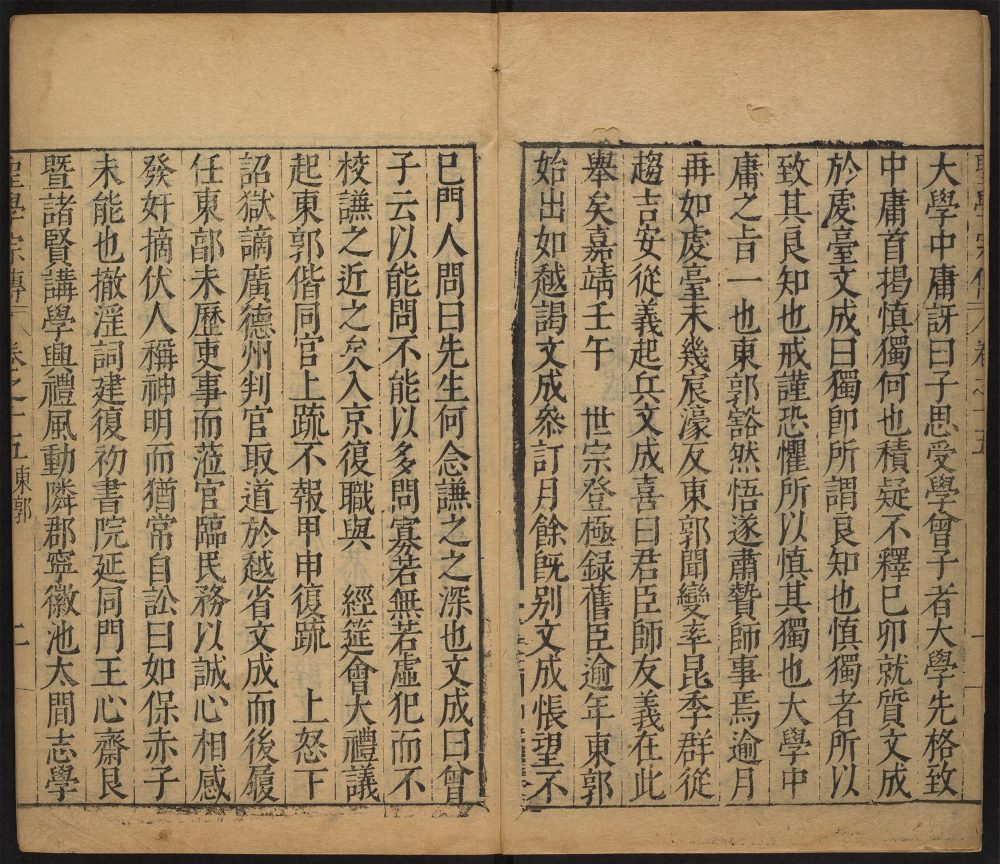 大學中庸訝曰子思受學曾子者大學先格致
中庸首揭慎獨何也積疑不釋已卯就質文成
於虔臺文成曰獨卽所謂良知也慎獨者所以
致其良知也戒謹恐懼所以慎其獨也大學中
庸之旨一也東郭豁然悟遂肅贄師事焉逾月
再如虔臺未幾宸濠反東郭聞變率昆季群從
趨吉安從義起兵文成喜曰君臣師友義在此
舉矣嘉靖壬午　世宗登極録舊臣逾年東郭
始出如越謁文成叅訂月餘旣别文成悵望不
已門人問曰先生何念謙之之深也文成曰曾
子云以能問不能以多問寡若無若虛犯而不
校謙之近之矣入京復職與　經筵會大禮議
起東郭偕同官上疏不報甲申復疏　上怒下
詔獄謫廣德州判官取道於越省文成而後履
任東郭未歷吏事而蒞官臨民務以誠心相感
發奸摘伏人稱神明而猶常自訟曰如保赤子
未能也撤淫詞建復初書院延同門王心齋艮
暨諸賢講學興禮風動隣郡寧徽池太間志學
聖學宗傳　卷之十五東郭　二